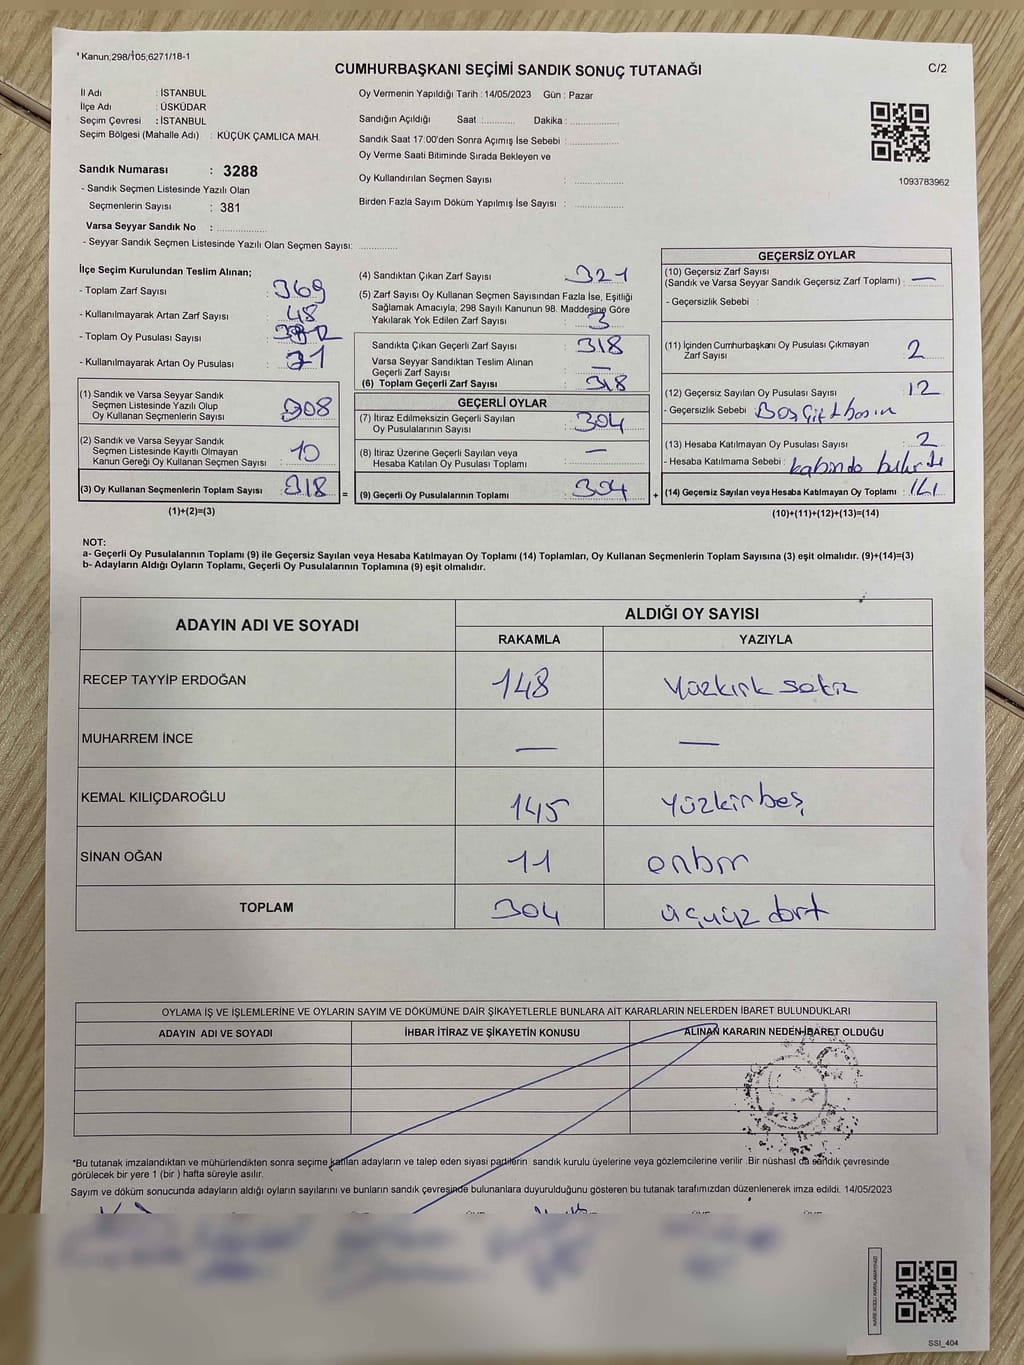 ¹ Kanun;298/105;6271/18-1
CUMHURBAŞKANI SEÇİMİ SANDIK SONUÇ TUTANAĞI
C/2
İl Adı : İSTANBUL
İlçe Adı : ÜSKÜDAR
Seçim Çevresi : İSTANBUL
Seçim Bölgesi (Mahalle Adı) : KÜÇÜK ÇAMLICA MAH.
Sandık Numarası : 3288
- Sandık Seçmen Listesinde Yazılı Olan
Seçmenlerin Sayısı : 381
Varsa Seyyar Sandık No :
- Seyyar Sandık Seçmen Listesinde Yazılı Olan Seçmen Sayısı:
Oy Vermenin Yapıldığı Tarih : 14/05/2023 Gün : Pazar
Sandığın Açıldığı Saat : Dakika :
Sandık Saat 17:00'den Sonra Açımış İse Sebebi :
Oy Verme Saati Bitiminde Sırada Bekleyen ve
Oy Kullandırılan Seçmen Sayısı :
Birden Fazla Sayım Döküm Yapılmış İse Sayısı :
1093783962
İlçe Seçim Kurulundan Teslim Alınan;
- Toplam Zarf Sayısı : 369
- Kullanılmayarak Artan Zarf Sayısı : 48
- Toplam Oy Pusulası Sayısı :
- Kullanılmayarak Artan Oy Pusulası :
(1) Sandık ve Varsa Seyyar Sandık
Seçmen Listesinde Yazılı Olup
Oy Kullanan Seçmenlerin Sayısı : 308
(2) Sandık ve Varsa Seyyar Sandık
Seçmen Listesinde Kayıtlı Olmayan
Kanun Gereği Oy Kullanan Seçmen Sayısı : 10
(3) Oy Kullanan Seçmenlerin Toplam Sayısı : 318 =
(1)+(2)=(3)
(4) Sandıktan Çıkan Zarf Sayısı : 321
(5) Zarf Sayısı Oy Kullanan Seçmen Sayısından Fazla İse, Eşitliği
Sağlamak Amacıyla; 298 Sayılı Kanunun 98. Maddesine Göre
Yakılarak Yok Edilen Zarf Sayısı : 3
Sandıkta Çıkan Geçerli Zarf Sayısı : 318
Varsa Seyyar Sandıktan Teslim Alınan
Geçerli Zarf Sayısı : —
(6) Toplam Geçerli Zarf Sayısı : 318
GEÇERLİ OYLAR
(7) İtiraz Edilmeksizin Geçerli Sayılan
Oy Pusulalarının Sayısı : 304
(8) İtiraz Üzerine Geçerli Sayılan veya
Hesaba Katılan Oy Pusulası Toplamı : —
(9) Geçerli Oy Pusulalarının Toplamı : 304 +
GEÇERSİZ OYLAR
(10) Geçersiz Zarf Sayısı
(Sandık ve Varsa Seyyar Sandık Geçersiz Zarf Toplamı) : —
- Geçersizlik Sebebi :
(11) İçinden Cumhurbaşkanı Oy Pusulası Çıkmayan
Zarf Sayısı : 2
(12) Geçersiz Sayılan Oy Pusulası Sayısı : 12
- Geçersizlik Sebebi : Boş Çift basım
(13) Hesaba Katılmayan Oy Pusulası Sayısı : 2
- Hesaba Katılmama Sebebi : kabinde
(14) Geçersiz Sayılan veya Hesaba Katılmayan Oy Toplamı : 14
(10)+(11)+(12)+(13)=(14)
NOT:
a- Geçerli Oy Pusulalarının Toplamı (9) ile Geçersiz Sayılan veya Hesaba Katılmayan Oy Toplamı (14) Toplamları, Oy Kullanan Seçmenlerin Toplam Sayısına (3) eşit olmalıdır. (9)+(14)=(3)
b- Adayların Aldığı Oyların Toplamı, Geçerli Oy Pusulalarının Toplamına (9) eşit olmalıdır.
ADAYIN ADI VE SOYADI
ALDIĞI OY SAYISI
RAKAMLA YAZIYLA
RECEP TAYYİP ERDOĞAN 148 Yüzkırk sekiz
MUHARREM İNCE — —
KEMAL KILIÇDAROĞLU 145 yüzkirbeş
SİNAN OĞAN 11 onbir
TOPLAM 304 üçyüz dört
OYLAMA İŞ VE İŞLEMLERİNE VE OYLARIN SAYIM VE DÖKÜMÜNE DAİR ŞİKAYETLERLE BUNLARA AİT KARARLARIN NELERDEN İBARET BULUNDUKLARI
ADAYIN ADI VE SOYADI İHBAR İTİRAZ VE ŞİKAYETİN KONUSU ALINAN KARARIN NEDEN İBARET OLDUĞU
*Bu tutanak imzalandıktan ve mühürlendikten sonra seçime katılan adayların ve talep eden siyasi partilerin sandık kurulu üyelerine veya gözlemcilerine verilir. Bir nüshası da sandık çevresinde
görülecek bir yere 1 (bir ) hafta süreyle asılır.
Sayım ve döküm sonucunda adayların aldığı oyların sayılarını ve bunların sandık çevresinde bulunanlara duyurulduğunu gösteren bu tutanak tarafımızdan düzenlenerek imza edildi. 14/05/2023
SSI_404